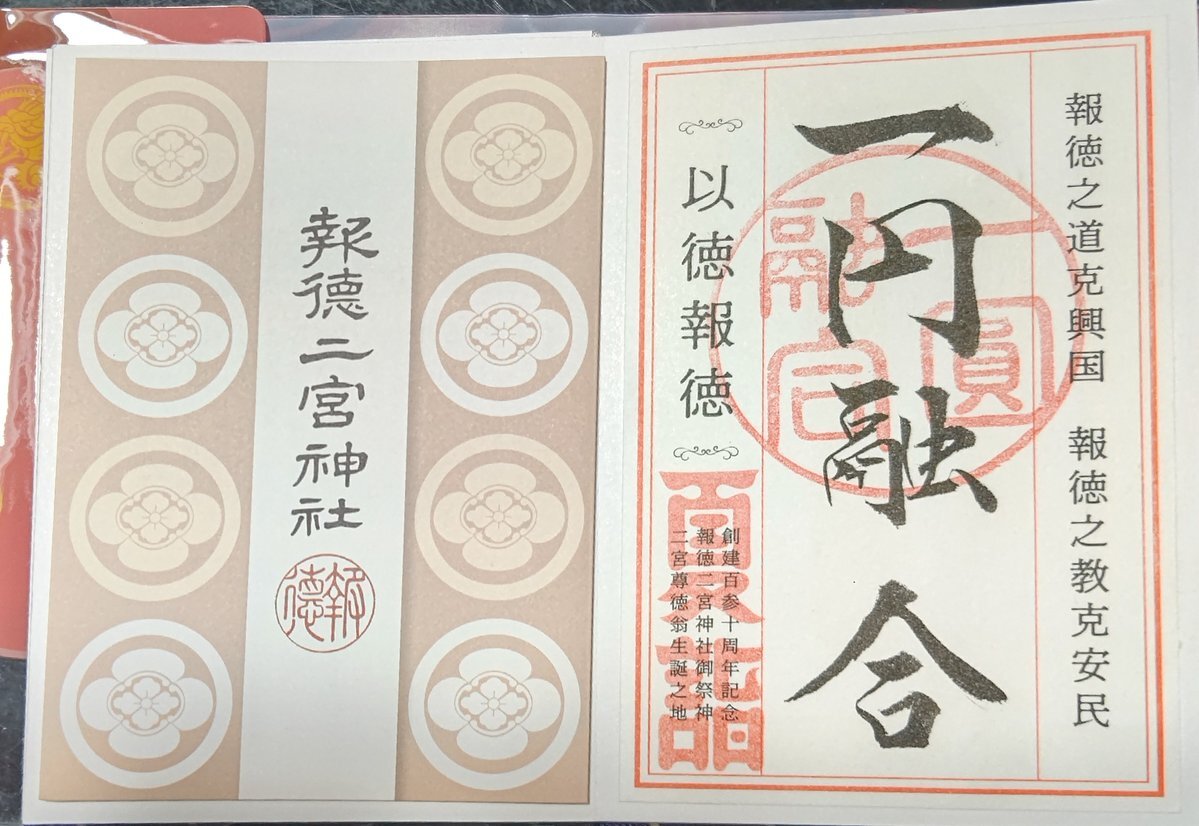 報徳之道克興国　報徳之教克安民
一円融合
一圓融合
以徳報徳
夏詣
創建百参十周年記念
報徳二宮神社御祭神
二宮尊徳翁生誕之地
報徳二宮神社
報徳